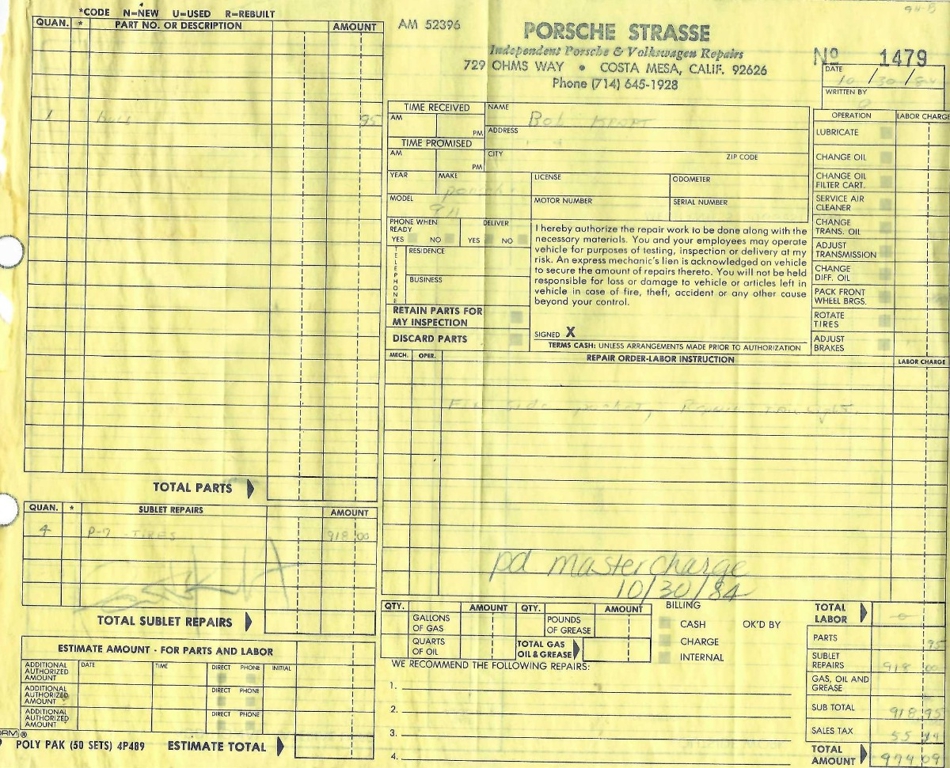 *CODE N=NEW U=USED R=REBUILT
QUAN. * PART NO. OR DESCRIPTION AMOUNT
1 95
TOTAL PARTS
QUAN. * SUBLET REPAIRS AMOUNT
4 P-7 TIRES 918 00
TOTAL SUBLET REPAIRS
ESTIMATE AMOUNT - FOR PARTS AND LABOR
ADDITIONAL AUTHORIZED AMOUNT DATE TIME DIRECT PHONE INITIAL
ADDITIONAL AUTHORIZED AMOUNT DIRECT PHONE
ADDITIONAL AUTHORIZED AMOUNT DIRECT PHONE
POLY PAK (50 SETS) 4P489 ESTIMATE TOTAL
AM 52396
PORSCHE STRASSE
Independent Porsche & Volkswagen Repairs
729 OHMS WAY • COSTA MESA, CALIF. 92626
Phone (714) 645-1928
No 1479
DATE 10/30/84
WRITTEN BY
TIME RECEIVED
AM PM
TIME PROMISED
AM PM
NAME Bob
ADDRESS
CITY ZIP CODE
YEAR MAKE Porsche
LICENSE ODOMETER
MODEL 911
MOTOR NUMBER SERIAL NUMBER
PHONE WHEN READY DELIVER
YES NO YES NO
TELEPHONE
RESIDENCE
BUSINESS
RETAIN PARTS FOR MY INSPECTION
DISCARD PARTS
I hereby authorize the repair work to be done along with the
necessary materials. You and your employees may operate
vehicle for purposes of testing, inspection or delivery at my
risk. An express mechanic's lien is acknowledged on vehicle
to secure the amount of repairs thereto. You will not be held
responsible for loss or damage to vehicle or articles left in
vehicle in case of fire, theft, accident or any other cause
beyond your control.
SIGNED X
TERMS CASH: UNLESS ARRANGEMENTS MADE PRIOR TO AUTHORIZATION
OPERATION LABOR CHARGE
LUBRICATE
CHANGE OIL
CHANGE OIL FILTER CART.
SERVICE AIR CLEANER
CHANGE TRANS. OIL
ADJUST TRANSMISSION
CHANGE DIFF. OIL
PACK FRONT WHEEL BRGS.
ROTATE TIRES
ADJUST BRAKES
MECH. OPER. REPAIR ORDER-LABOR INSTRUCTION LABOR CHARGE
pd mastercharge
10/30/84
QTY. AMOUNT QTY. AMOUNT
GALLONS OF GAS POUNDS OF GREASE
QUARTS OF OIL TOTAL GAS OIL & GREASE
BILLING
CASH OK'D BY
CHARGE
INTERNAL
WE RECOMMEND THE FOLLOWING REPAIRS:
1.
2.
3.
4.
TOTAL LABOR
PARTS 95
SUBLET REPAIRS 918 00
GAS, OIL AND GREASE
SUB TOTAL 918 95
SALES TAX 55 14
TOTAL AMOUNT 974 09